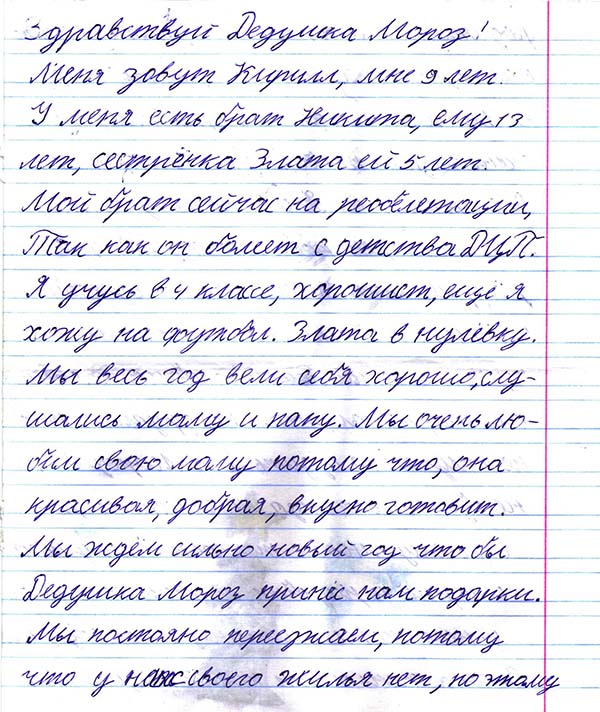 Здравствуй Дедушка Мороз!
Меня зовут Кирилл, мне 9 лет.
У меня есть брат Никита, ему 13
лет, сестрёнка Злата ей 5 лет.
Мой брат сейчас на реабелетации,
Так как он болеет с детства ДЦП.
Я учусь в 4 классе, хорошист, ещё я
хожу на футбол. Злата в нулёвку.
Мы весь год вели себя хорошо, слу-
шались маму и папу. Мы очень лю-
бим свою маму потому что, она
красивая, добрая, вкусно готовит.
Мы ждём сильно новый год что бы
Дедушка Мороз принёс нам подарки.
Мы постояно переезжаем, потому
что у нас своего жилья нет, поэтому